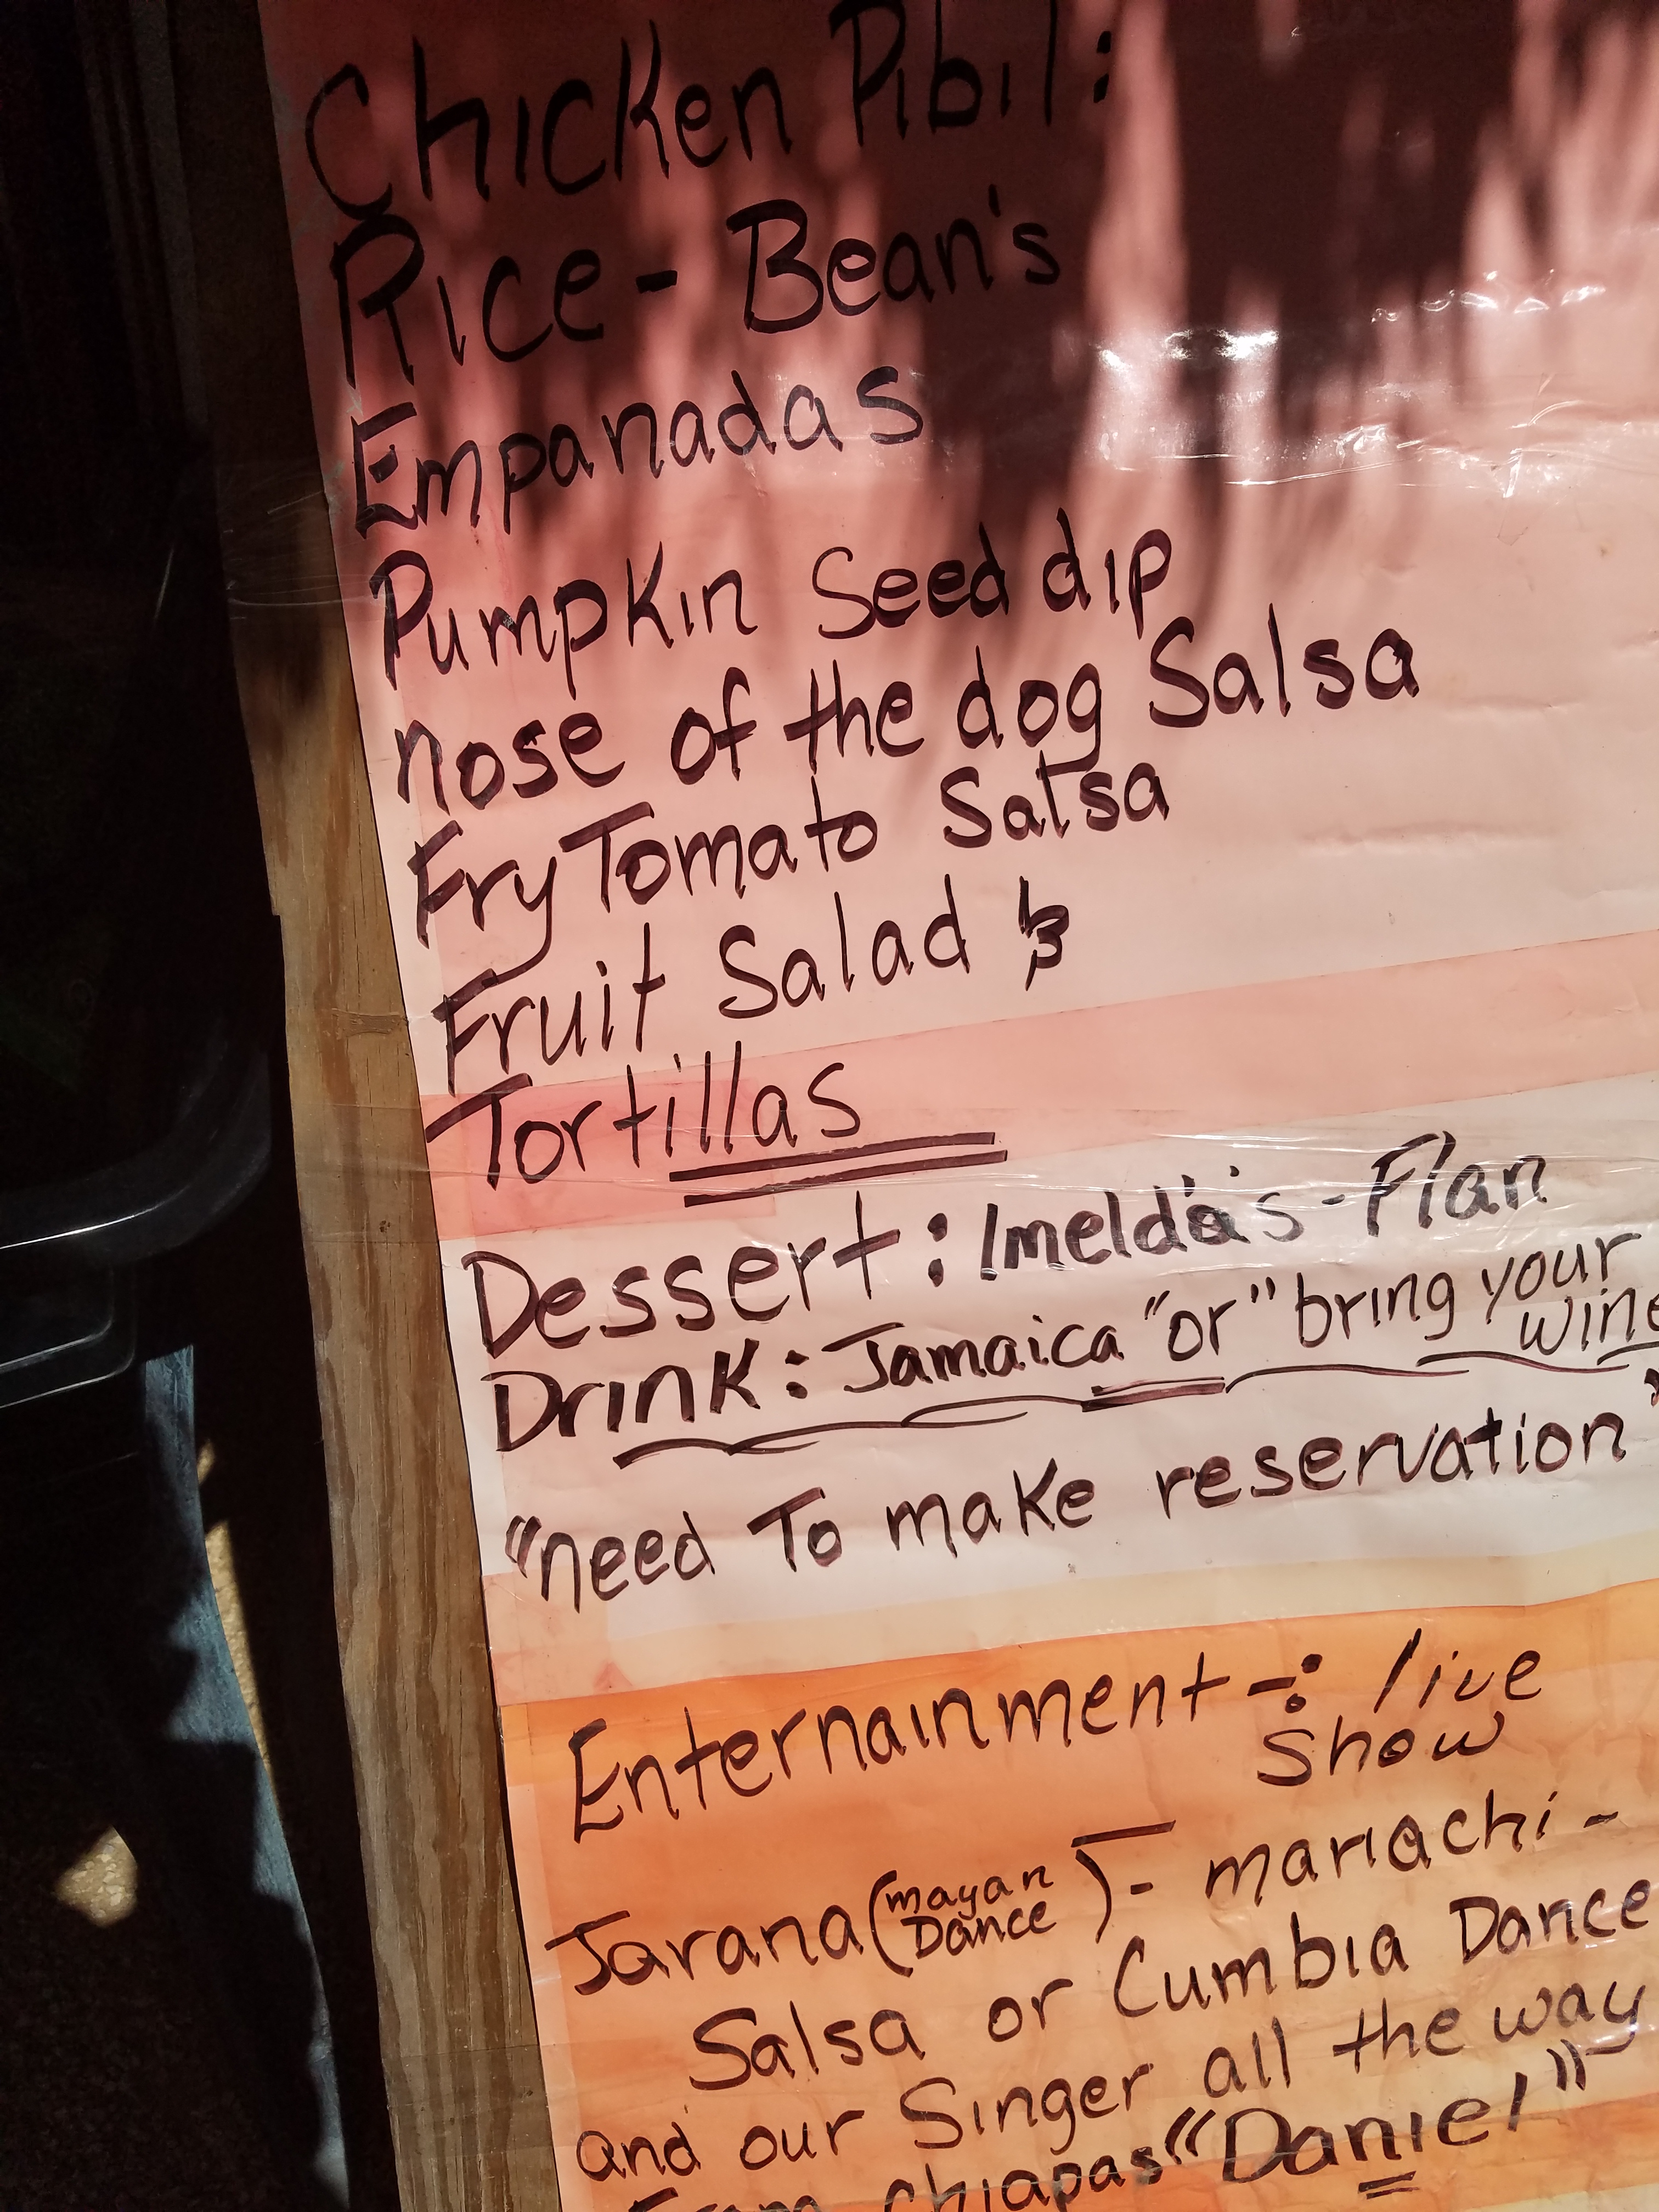 Chicken Pibil:
Rice - Bean's
Empanadas
Pumpkin Seed dip
nose of the dog Salsa
Fry Tomato Salsa
Fruit Salad &
Tortillas
Dessert: Imelda's - Flan
Drink: Jamaica "or" bring your
wine
"need To make reservation"
Enternainment -: live
Show
Jarana (mayan
Dance) - mariachi -
Salsa or Cumbia Dance
and our Singer all the way
From chiapas "Daniel"